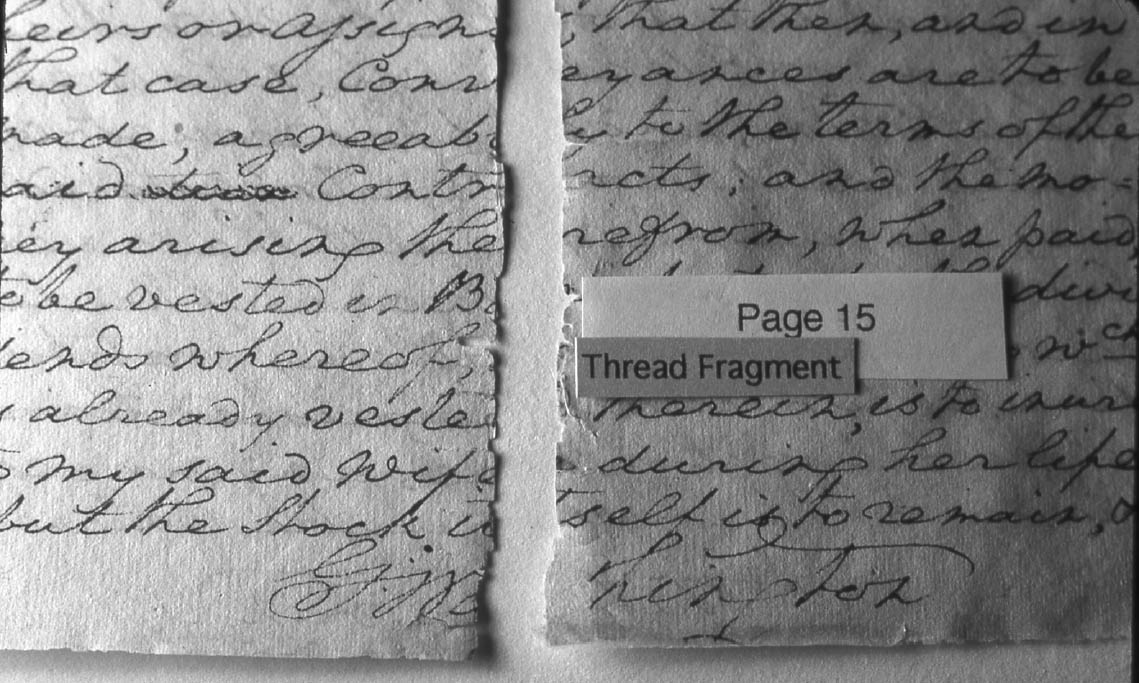 heirs or assigns, that then, and in
that case, Conveyances are to be
made, agreeably to the terms of the
said Contracts; and the mo=
ney arising therefrom, when paid,
to be vested in divi
Page 15
dends whereof, wch
Thread Fragment
already vested therein, is to inure
to my said wife during her life
but the Stock itself is to remain, &
G: Washington